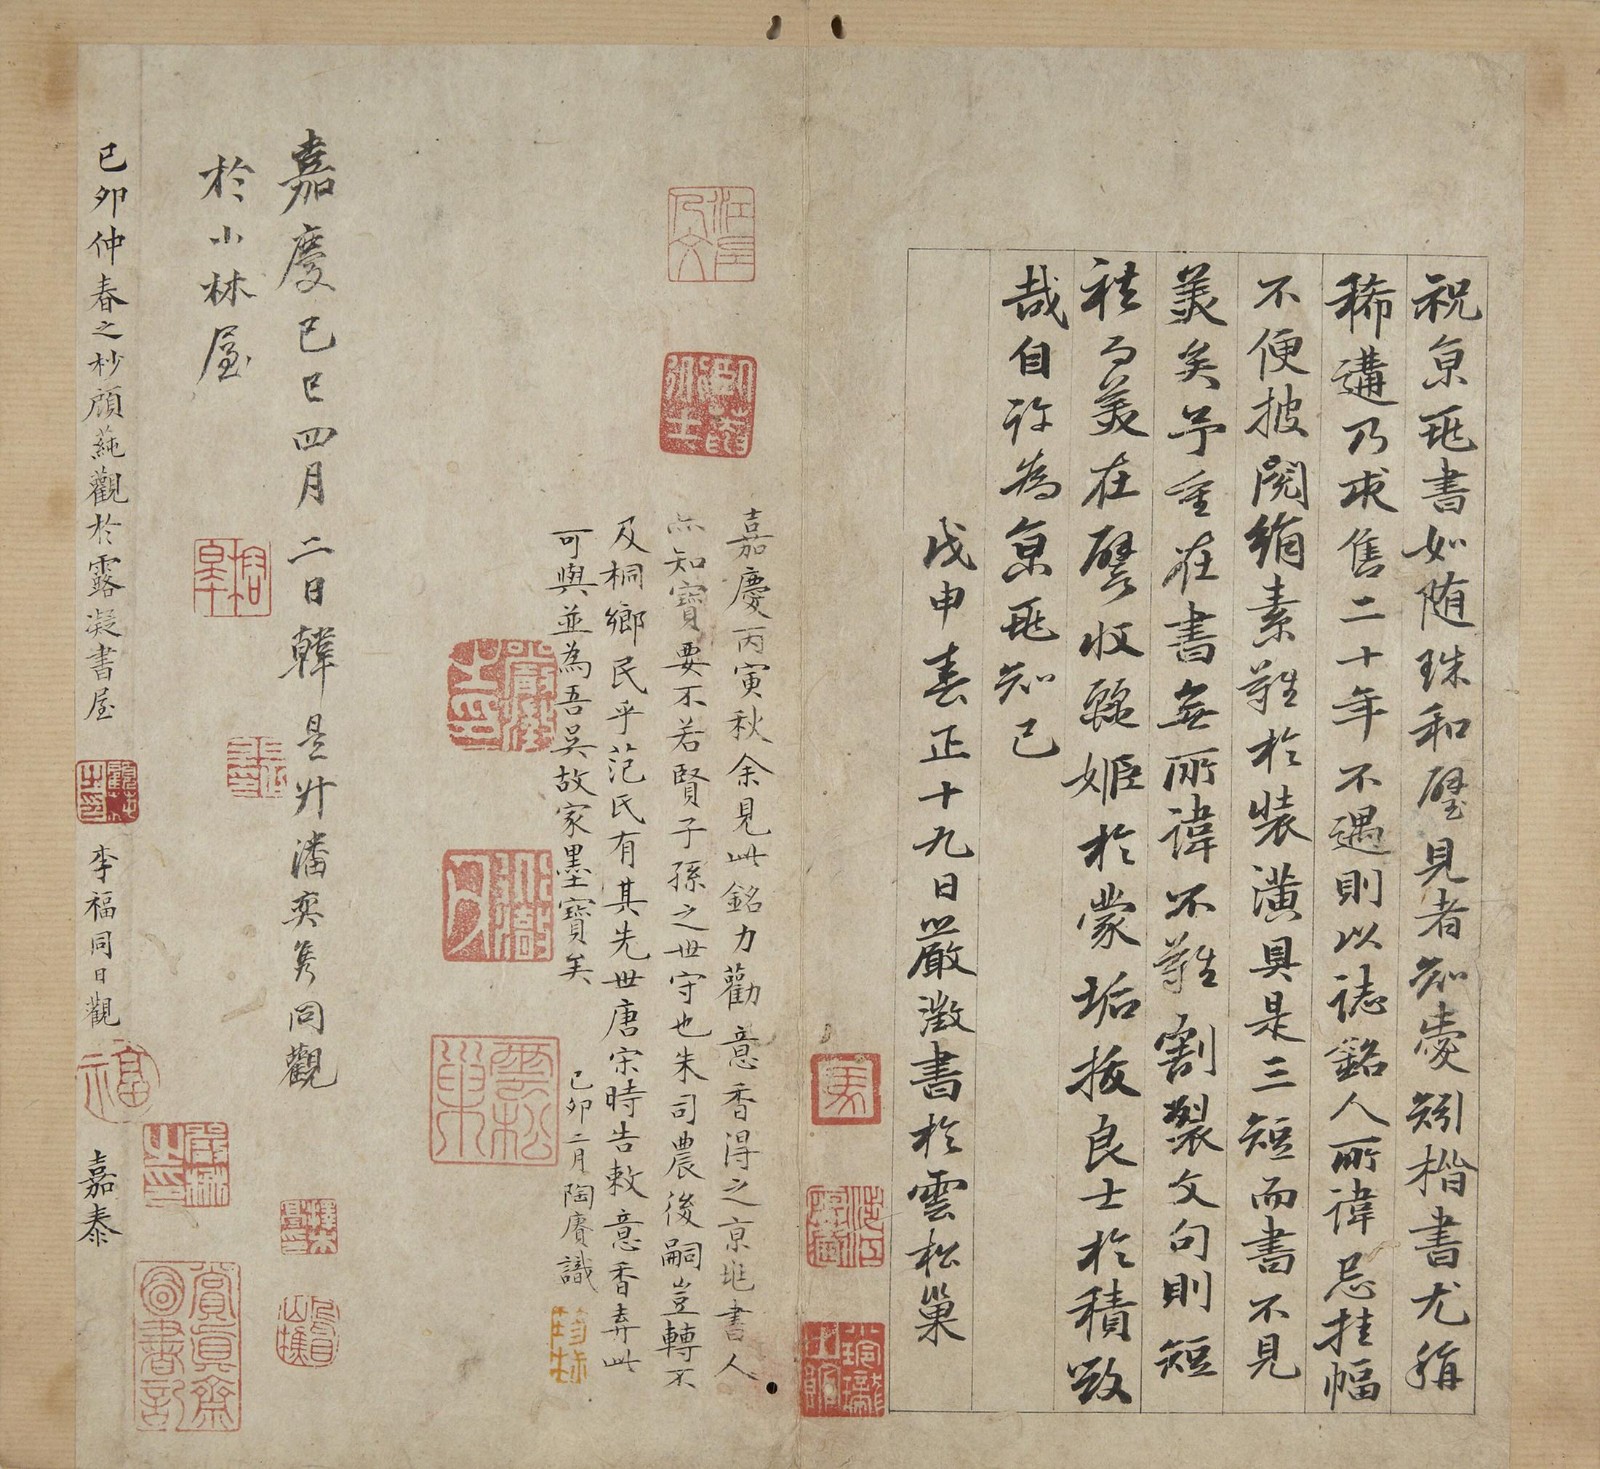 祝京兆書如隨珠和璧見者知愛矧楷書尤稱
稀遘乃求售二十年不遇則以誌銘人所諱忌挂幅
不便披閱絹素難於裝潢具是三短而書不見
美矣予重在書無所諱不難割製文句則短
袿而美在譬收驪姬於蒙垢拔良士於積毀
哉自許為京兆知己
戊申春正十九日嚴澂書於雲松巢
嘉慶丙寅秋余見此銘力勸意香得之京兆書人
亦知寶要不若賢子孫之世守也朱司農後嗣豈轉不
及桐鄉民乎范氏有其先世唐宋時告敕意香弆此
可與並為吾吳故家墨寶矣
己卯二月陶賡識
嘉慶己巳四月二日韓是升潘奕雋同觀
於小林屋
己卯仲春之杪顧蒓觀於露凝書屋
李福同日觀
嘉泰
雲松巢
賞真齋圖書記